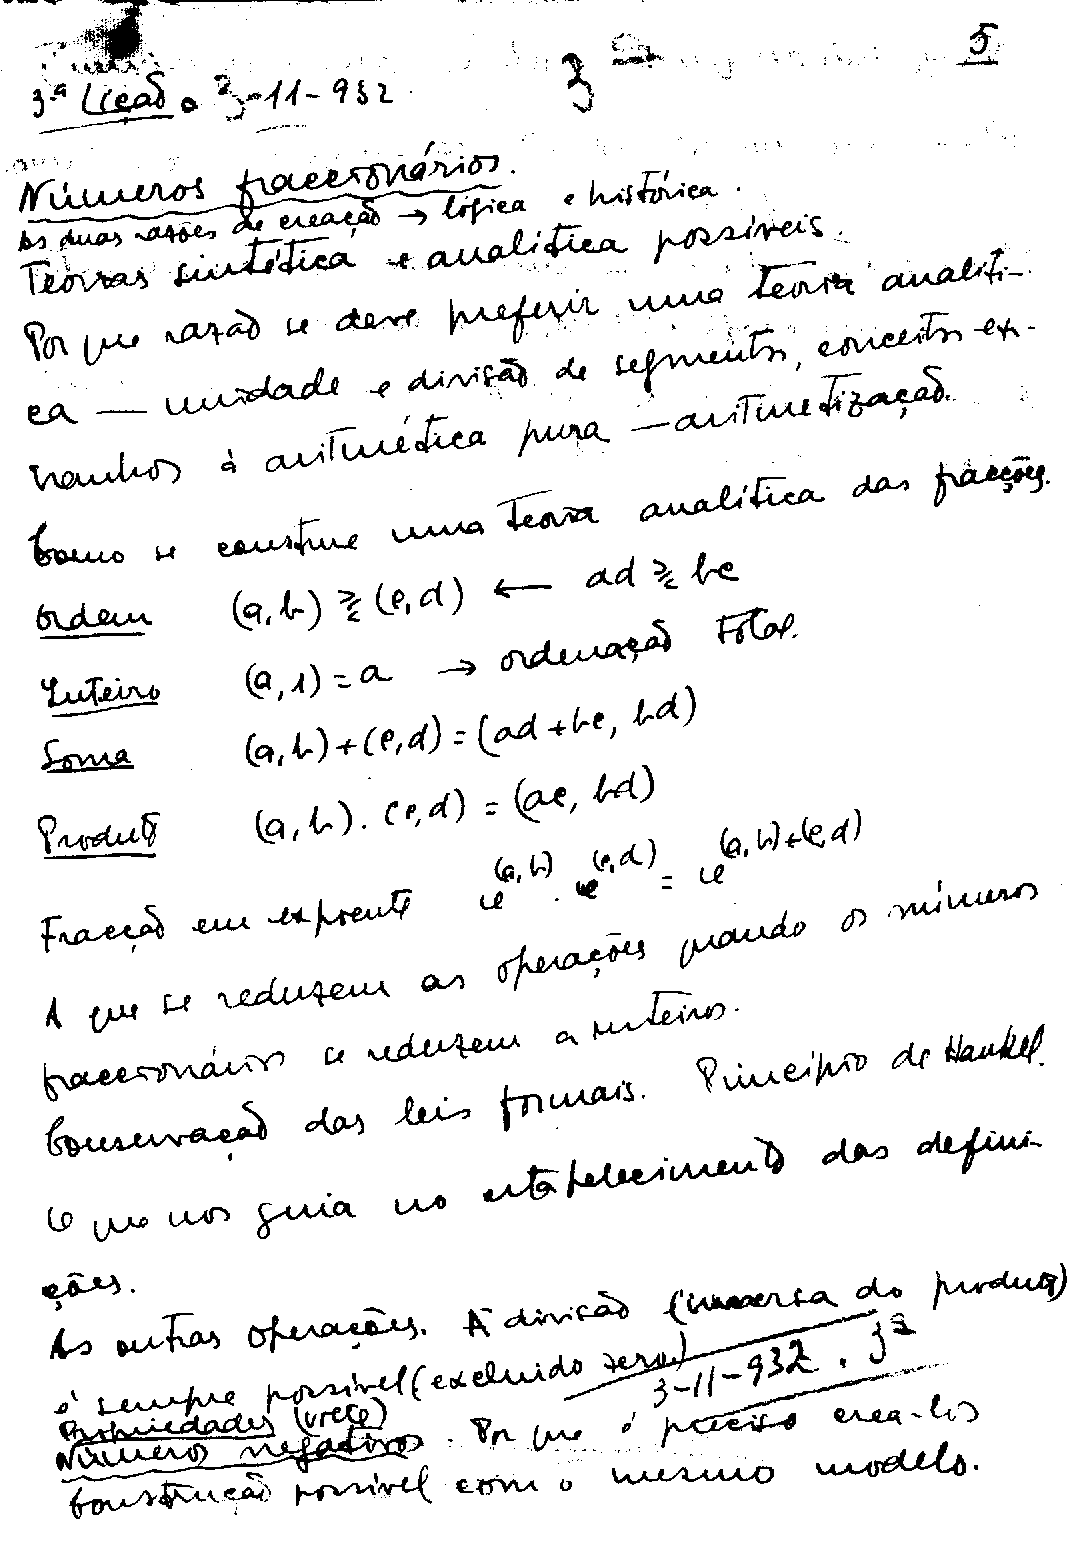 5
3
3ª Lição. 3-11-932
Números fraccionários.
As duas razões de creação → lógica e histórica.
Teorias sintética e analítica possíveis.
Por que razão se deve preferir uma teoria analíti-
ca — unidade e divisão de segmentos, conceitos ex-
tranhos à aritmética pura — aritmetização.
Como se construe uma teoria analítica das fracções.
Ordem (a,b) ⪌ (c,d) ← ad ⪌ bc
Inteiro (a,1) = a → ordenação total.
Soma (a,b)+(c,d)=(ad+bc, bd)
Produto (a,b).(c,d) = (ac, bd)
Fracção em expoente e^(a,b) . e^(c,d) = e^(a,b)+(c,d)
A que se reduzem as operações quando os números
fraccionários se reduzem a inteiros.
Conservação das leis formais. Princípio de Hankel.
O que nos guia no estabelecimento das defini-
ções.
As outras operações. A divisão (inversa do produto)
é sempre possível (excluido zero)
3-11-932. 3ª
Propriedades
Números negativos. Por que é preciso crea-los
Construcção possível com o mesmo modelo.